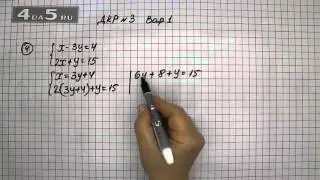 4DA5.RU
ДКР №3 Вар 1
④ { x - 3y = 4
2x + y = 15
{ x = 3y + 4 | 6y + 8 + y = 15
2(3y+4)+y = 15